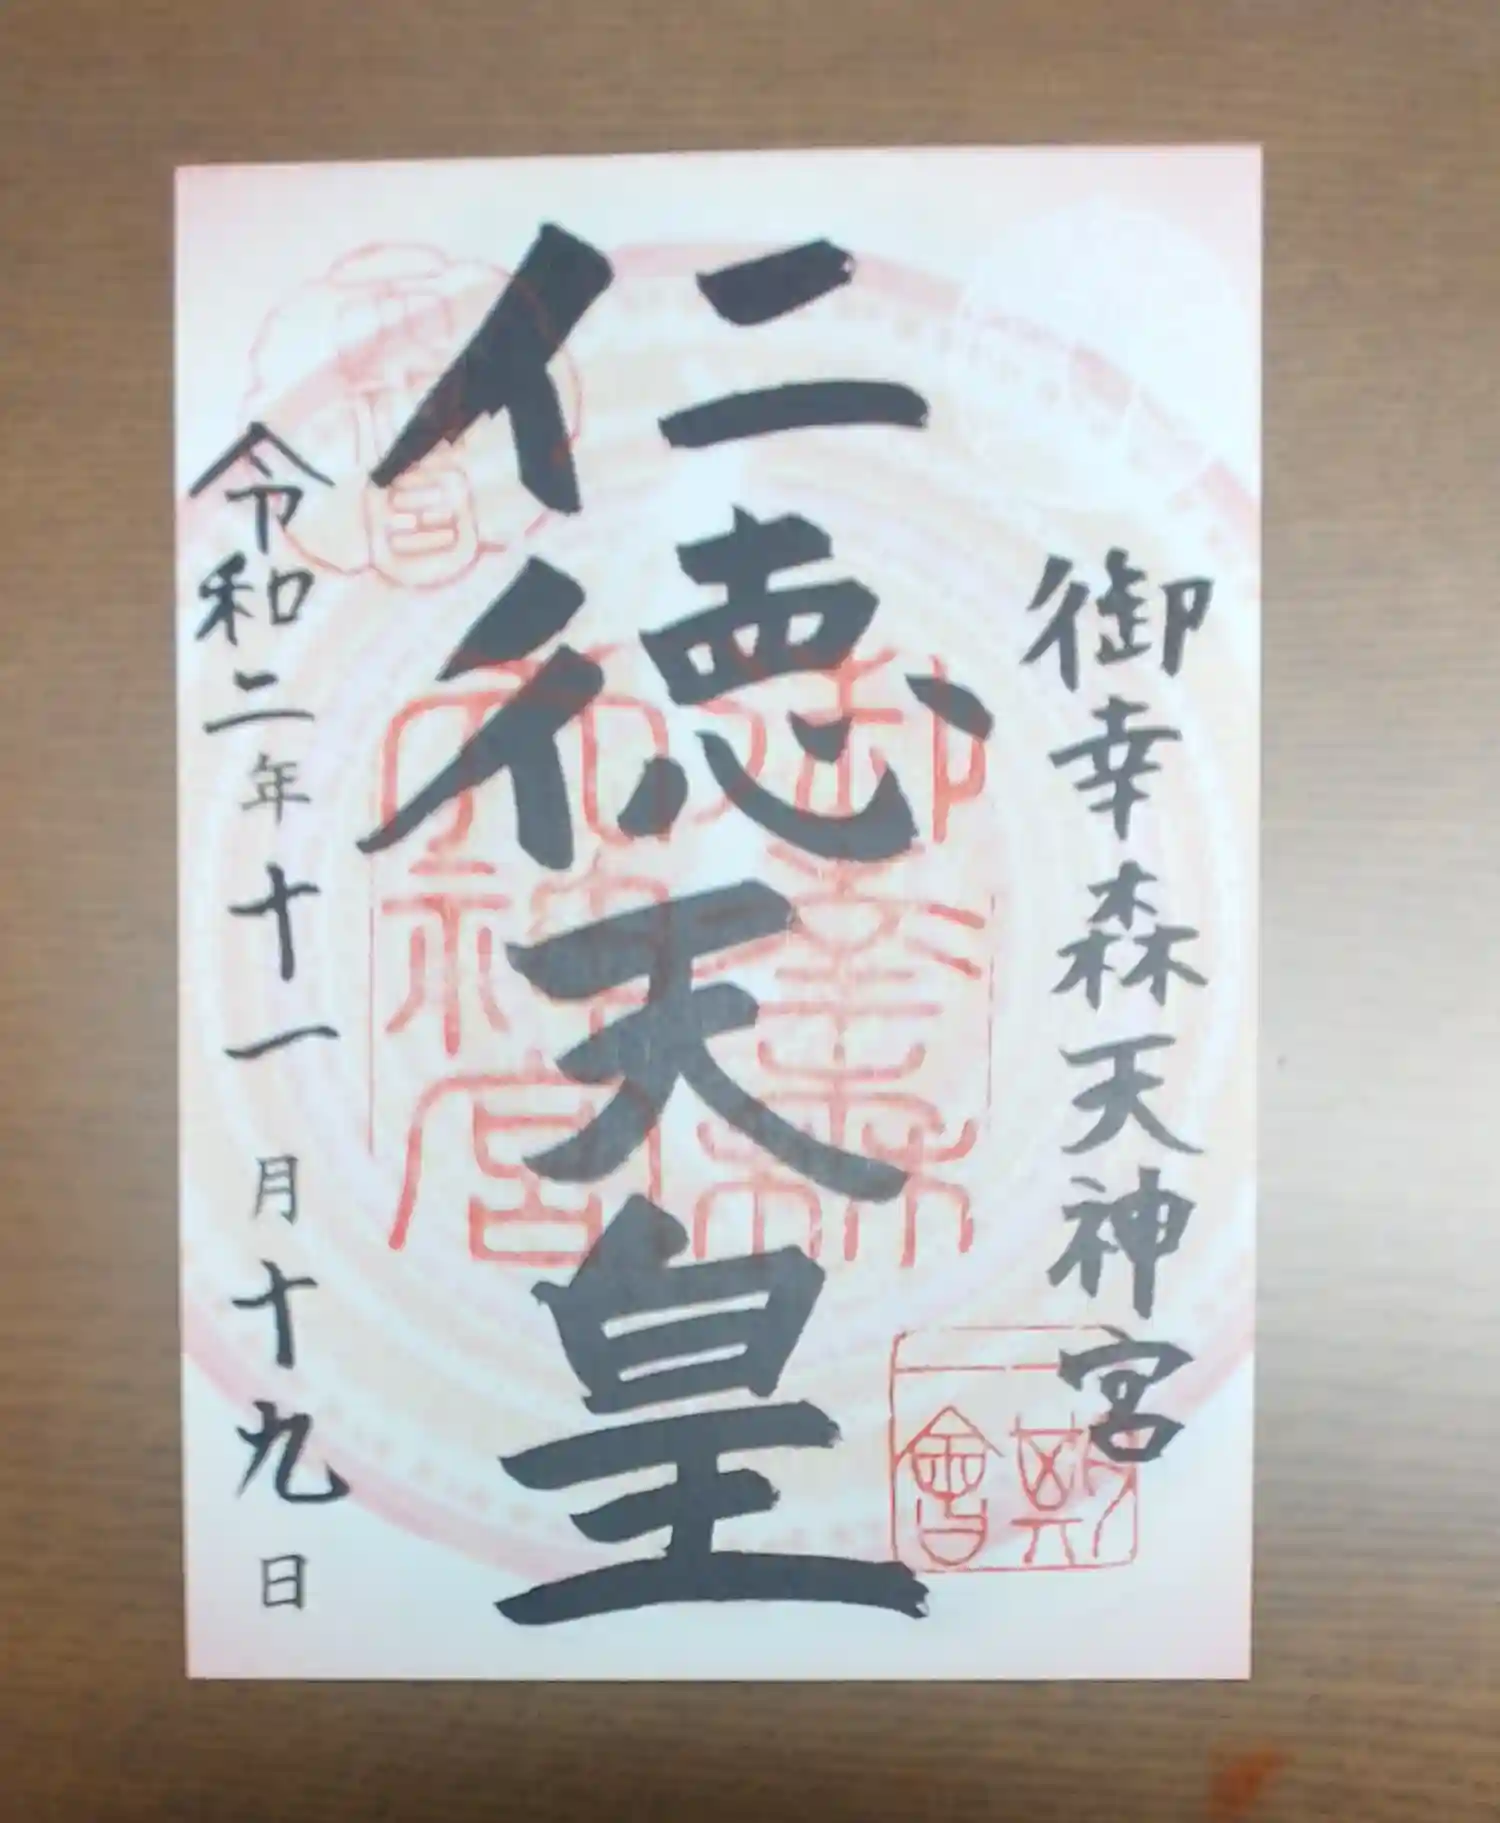 御幸森天神宮
仁徳天皇
令和二年十一月十九日
御幸森
天神宮